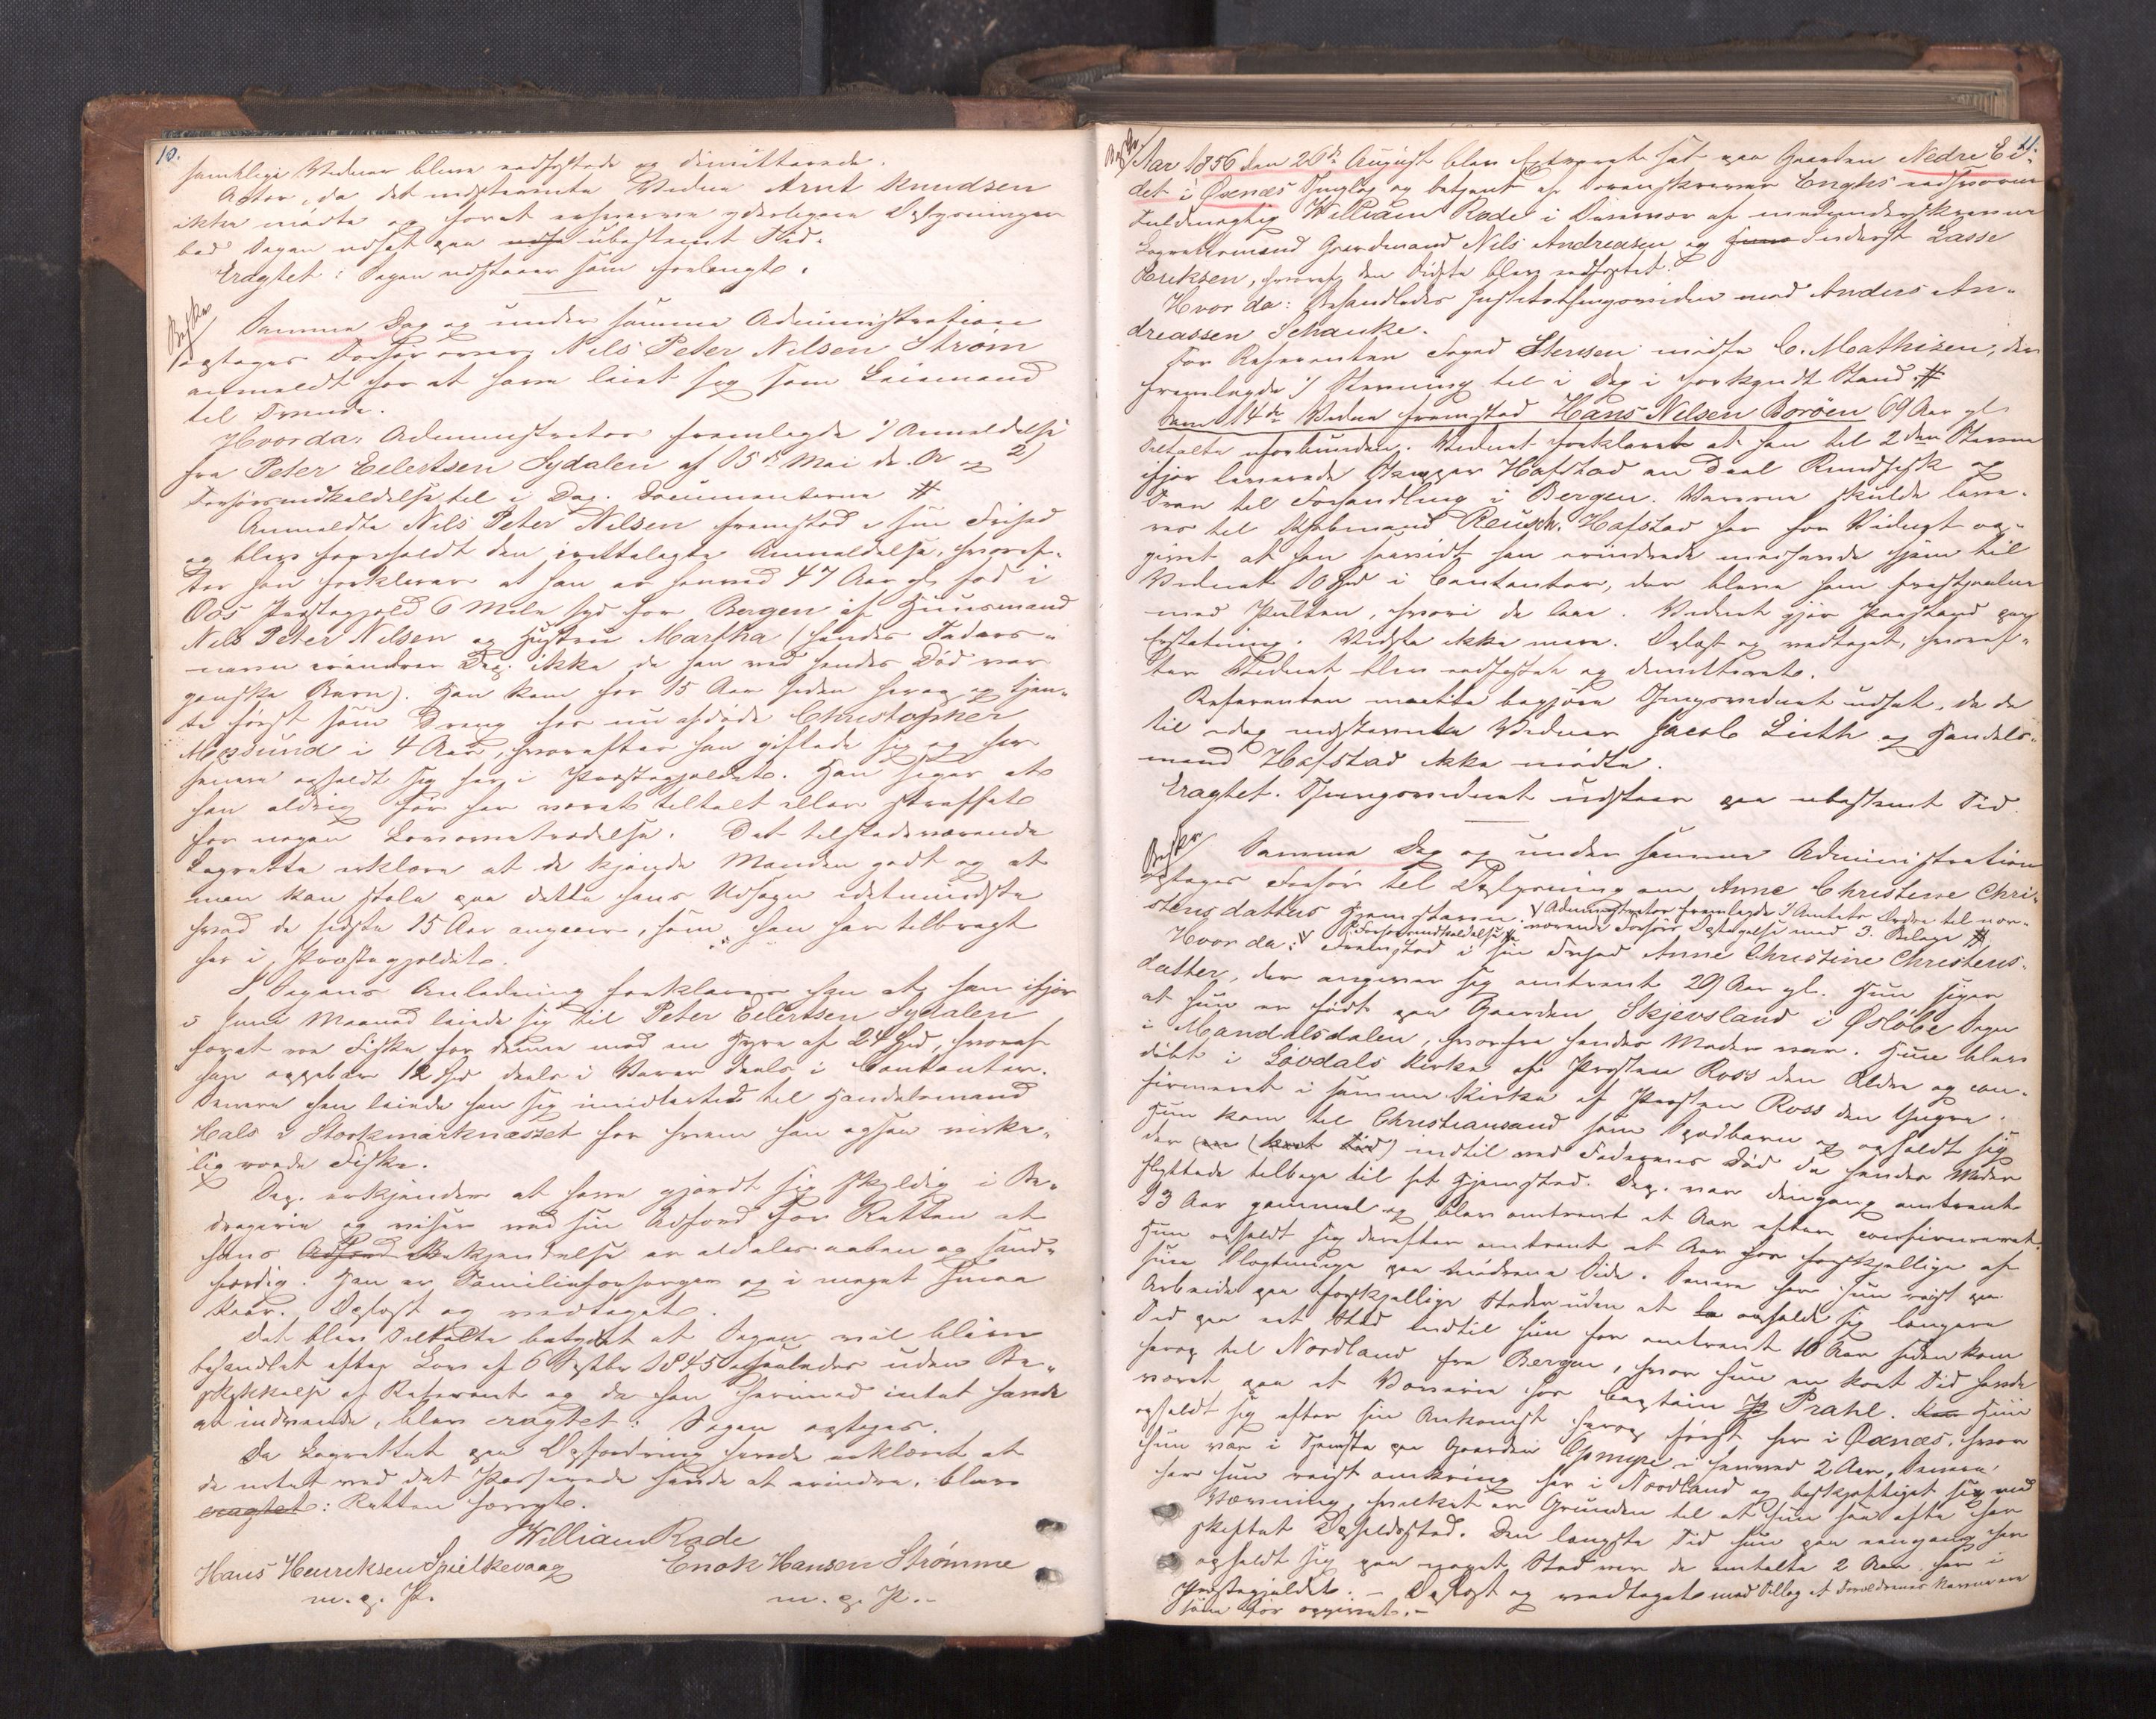 10.
samtlige Vidner bleve edfæstede og dimitterede.
Actor, da det indstævnte Vidne Arnt Knudsen
ikke mødte og for at erhverve yderligere Oplysninger
bad Sagen udsat paa ubestemt Tid.
Eragtet: Sagen udstaaer som forlangt.
Besk.
Samme Dag og under samme Administration
optoges Forhør over Nils Peter Nilsen Strøm
anmeldt for at have leiet sig som Leiemand
til Tvende.
Hvorda: Administrator fremlagde 1) Anmeldelse
fra Peter Eilertsen Sydalen af 15de Mai d. A. og 2)
Forhørsindkaldelse til i Dag. Documenterne #
Anmeldte Nils Peter Nilsen fremstod i sin Frihed
og blev foreholdt den irettelagte Anmeldelse, hvoref-
ter han forklarer at han er henved 47 Aar gl., fød i
Oos Præstegjeld 6 Mile syd for Bergen af Huusmand
Nils Peter Nilsen og Hustru Martha (hendes Faders-
navn erindrer Dep. ikke da han ved hendes Død var
ganske Barn). Han kom for 15 Aar siden herop og tjen-
te først som Dreng hos nu afdøde Christopher
Mosund i 4 Aar, hvorefter han giftede sig og har
senere opholdt sig her i Præstegjeldet. Han siger at
han aldrig før har været tiltalt eller straffet
for nogen Lovovertrædelse. Det tilstedeværende
Lagrette erklære at de kjende Manden godt og at
man kan stole paa dette hans Udsagn idetmindste
hvad de sidste 15 Aar angaaer, som han har tilbragt
her i Præstegjeldet.
I Sagens Anledning forklarer han at han ifjor
i Juni Maaned leiede sig til Peter Eilertsen Sydalen
for at roe Fiske for denne mod en Hyre af 24 Spd, hvoraf
han oppebar 12 Spd deels i Varer deels i Contanter.
Senere hen leiede han sig imidlertid til Handelsmand
Hals i Storkmarknæsset for hvem han ogsaa virke-
lig roede Fiske.
Dep. erkjender at have gjordt sig skyldig i Be-
drageri og viser ved sin Adfærd for Retten at
hans Adfærd Bekjendelse er aldeles aaben og sand-
færdig. Han er Familieforsørger og i meget smaa
Kaar. Oplæst og vedtaget.
Det blev Tiltalte betydet at Sagen vil blive
behandlet efter Lov af 6 Septbr 1845 saaledes uden Be-
skikkelse af Referent og da han herimod intet havde
at indvende, blev eragtet: Sagen optages.
Da Lagrettet paa Opfordring havde erklæret at
de intet ved det Passerede havde at erindre, blev
eragtet: Retten hævet.
William Rode
Hans Henriksen Spilkevaag Enok Hansen Strømme
m. p. P. m. p. P.
11.
Besk.
Aar 1856 den 26de August blev Extraret sat paa Gaarden Nedre Ei-
det i Øxnæs Thinglag og betjent af Sorenskriver Enghs edsvorne
Fuldmægtig William Rode i Overvær af medunderskrevne
Lagrettemænd Gaardmand Nils Andreasen og Inderst Lasse
Eriksen, hvoraf den Sidste blev edfæstet.
Hvor da: Behandledes Justitsthingsvidne mod Anders An-
dreassen Schanke.
For Referenten Foged Stenersen mødte C. Mathisen, der
fremlagde 1) Stevning til i Dag i forkyndt Stand. #
Som 14de Vidne fremstod Hans Nilsen Borøen 69 Aar gl.
Tiltalte uforbunden. Vidnet forklarer at han til 2den Stevne
ifjor leverede Skipper Hafstad en Deel Rundfisk og
Tran til Forhandling i Bergen. Varerne skulde leve-
res til Kjøbmand Reusch. Hafstad har for Vidnet op-
givet at han saavidt han erindrede medhavde hjem til
Vidnet 10 Spd i Contanter, der bleve ham frastjaalne
med Pulten, hvori de laae. Vidnet gjør Paastand paa
Erstatning. Vidste ikke mere. Oplæst og vedtaget, hvoref-
ter Vidnet blev edfæstet og dimitteret.
Referenten maatte begjære Thingsvidnet udsat, da de
til idag indstevnte Vidner Jacob Lieth og Handels-
mand Hafstad ikke mødte.
Eragtet. Thingsvidnet udstaar paa ubestemt Tid.
Besk.
Samme Dag og under samme Administration
optoges Forhør til Oplysning om Anne Christine Chri-
stensdatters Hjemstavn. V Administrator fremlagde 1) Amtets Ordre til nær-
værende Forhørs Optagelse med 3. Bilage #
Hvor da: V 2) Forhørsindkaldelse #
Fremstod i sin Frihed Anne Christine Christens-
datter, der angiver sig omtrent 29 Aar gl. Hun siger
at hun er født paa Gaarden Skjevsland i Øsløbe Sogn
i Mandalsdalen, hvorfra hendes Moder var. Hun blev
døbt i Løvdals Kirke af Presten Ross den Ældre og con-
firmeret i samme Kirke af Presten Ross den Yngre.
Hun kom til Christiansand som Spædbarn og opholdt sig
der (en (kort Tid) indtil ved Faderens Død da hendes Moder
flyttede tilbage til sit Hjemsted. Dep. var dengang omtrent
13 Aar gammel og blev omtrent et Aar efter confirmeret.
Hun opholdt sig derefter omtrent et Aar hos forskjellige af
sine Slægtninge paa mødrene Side. Senere har hun reist paa
Arbeide paa forskjellige Steder uden at opholde sig længere
Tid paa eet Sted indtil hun for omtrent 10 Aar siden kom
herop til Nordland fra Bergen, hvor hun en kort Tid havde
været paa et Væveri hos Captain Prahl. Hun
opholdt sig efter sin Ankomst herop først her i Øxnæs, hvor
hun var i Tjeneste paa Gaarden Gpmyre i henved 2 Aar, senere
har hun reist omkring her i Nordland og beskjæftiget sig med
Vævning, hvilket er Grunden til at hun saa ofte har
skiftet Opholdssted. Den længste Tid hun paa eengang har
opholdt sig paa noget Sted var de omtalte 2 Aar her i
Præstegjeldet. - Oplæst og vedtaget med Tillæg at Forældrenes Navne ere
som før opgivet. -